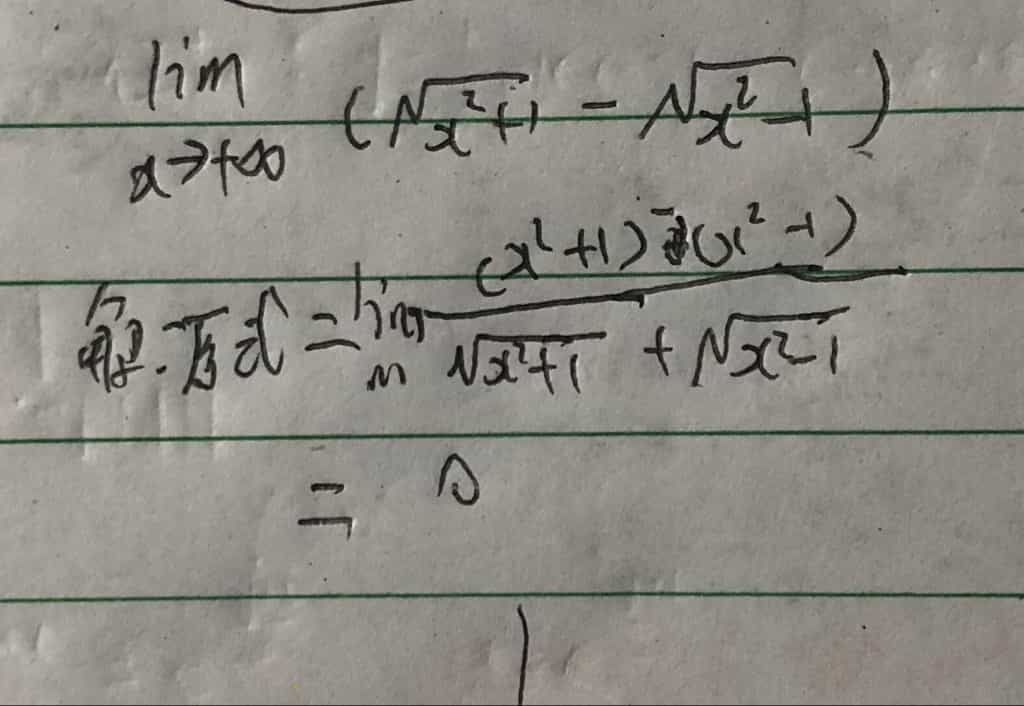 lim x→+∞ (√(x²+1) - √(x²-1))
解. 原式 = lim ((x²+1) - (x²-1)) / (√(x²+1) + √(x²-1))
= 0